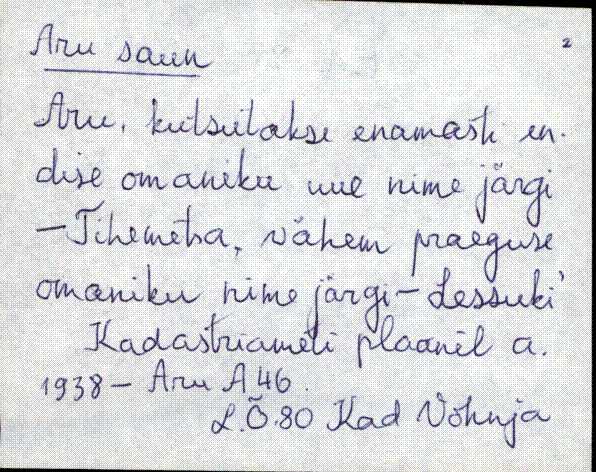 2
Aru saun
Aru, kutsutakse enamasti en-
dise omaniku uue nime järgi
– Tihemetsa, vähem praeguse
omaniku nime järgi – Lessuki
Kadastriameti plaanil a.
1938 – Aru A46.
L.Õ.80 Kad Võhnja